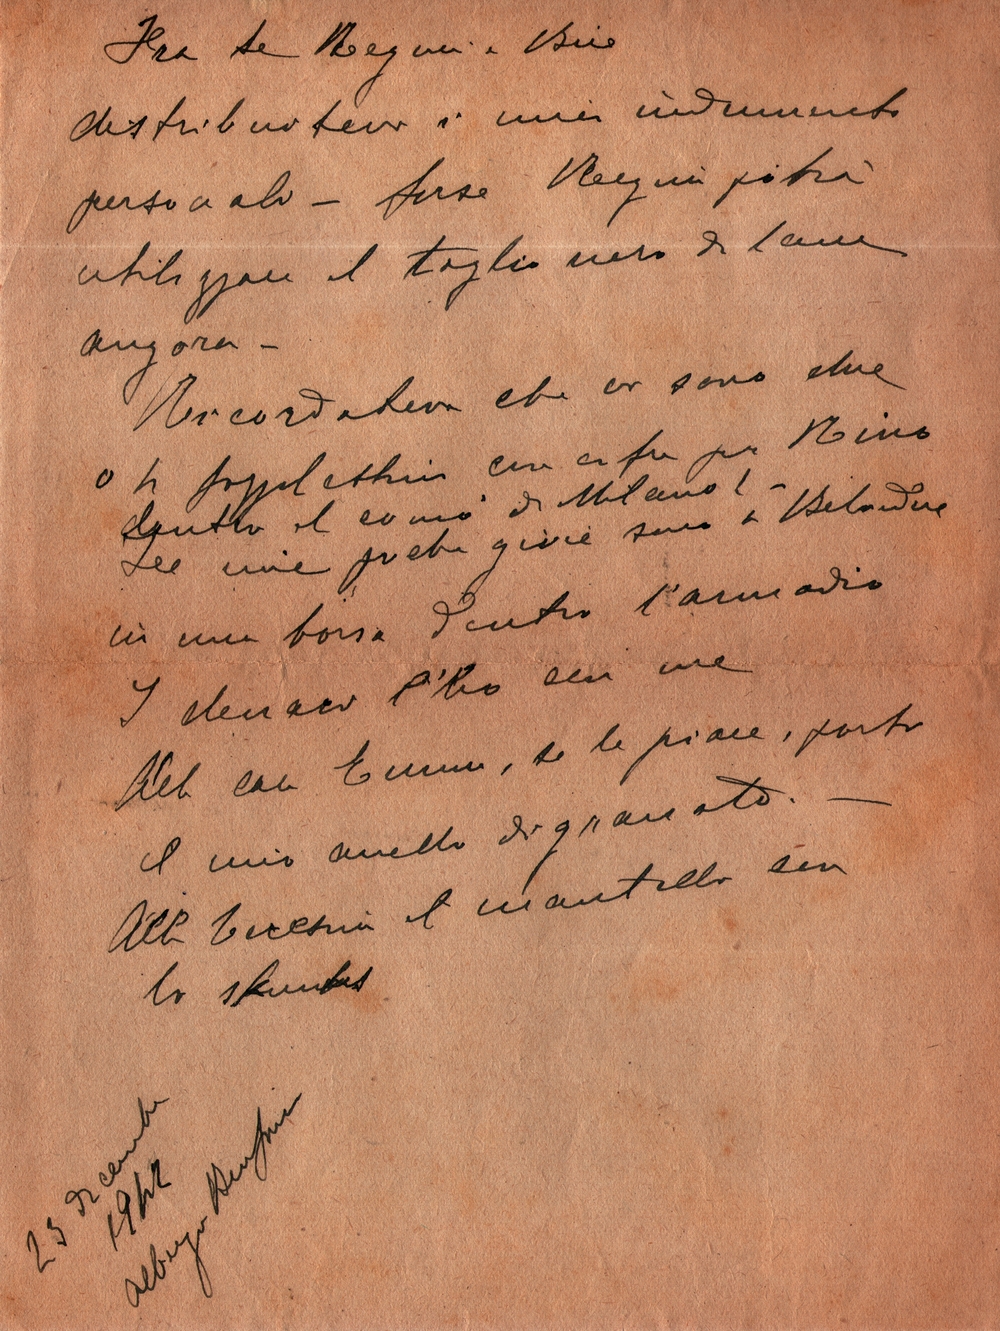 Fra te Regina e Bice
distribuitevi i miei indumenti
personali – forse Regina potrà
utilizzare il taglio nero di lana
angora –
Ricordatevi che ci sono due
o tre fazzolettini con cifre per Nino
dentro il comò di Milano! –
Le mie poche gioie sono a
in una borsa dentro l'armadio
I denaro l'ho con me
Alla cara Emma, se le piace, porto
il mio anello di granato. —
Alla il mantello con
lo skunks
23 dicembre
1942
albergo